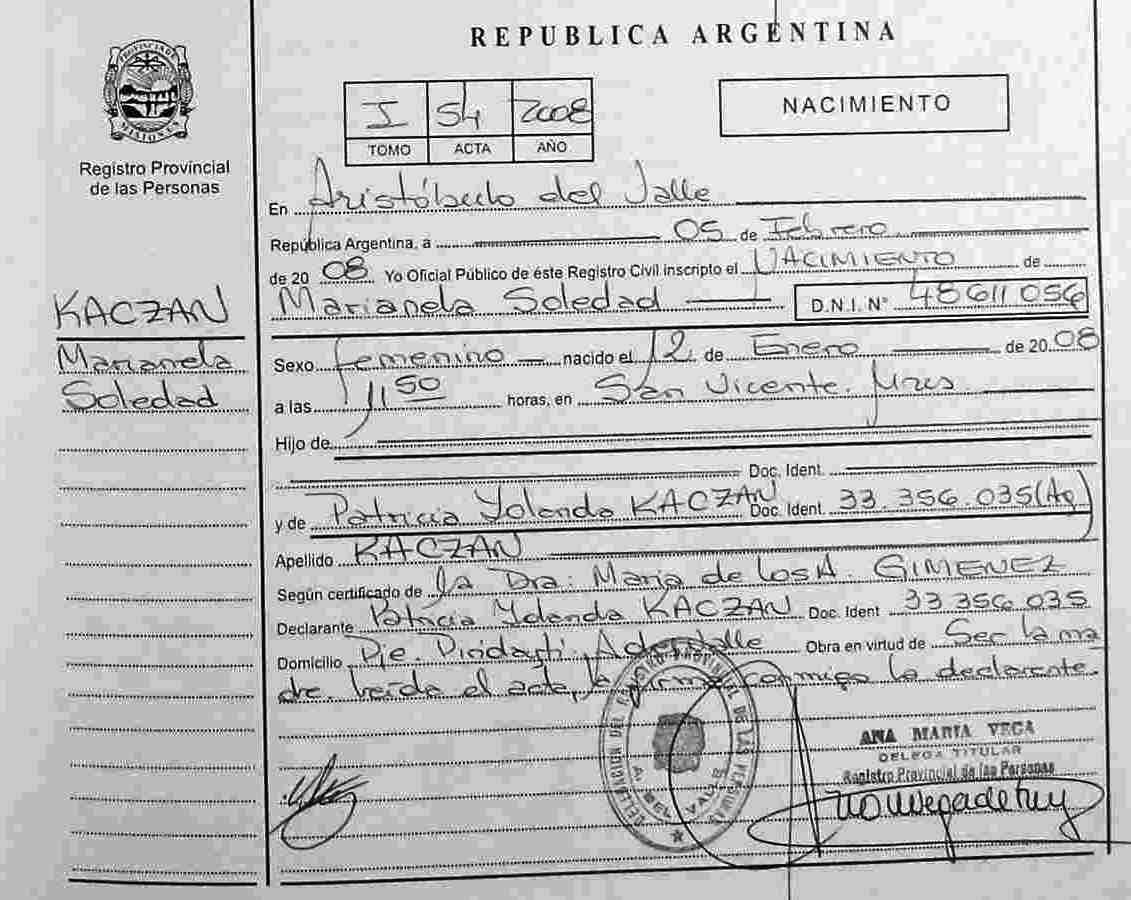 REPUBLICA ARGENTINA
PROVINCIA DE MISIONES
Registro Provincial
de las Personas
I 54 2008
TOMO ACTA AÑO
NACIMIENTO
En Aristóbulo del Valle
República Argentina, a 05 de Febrero
de 2008 Yo Oficial Público de éste Registro Civil inscripto el NACIMIENTO de
Marianela Soledad D.N.I. N° 48611056
KACZAN
Marianela
Soledad
Sexo femenino nacido el 12 de Enero de 2008
a las 11 50 horas, en San Vicente. Mnes
Hijo de
Doc. Ident.
y de Patricia Yolanda KACZAN Doc. Ident. 33.356.035 (Ag)
Apellido KACZAN
Según certificado de la Dra. Maria de los A. GIMENEZ
Declarante Patricia Yolanda KACZAN Doc. Ident 33 356 035
Domicilio Pje. A. del Valle Obra en virtud de Ser la ma
dre. Leída el acta, la firma conmigo la declarante.
DELEGACION DEL REGISTRO PROVINCIAL DE LAS PERSONAS
A. DEL VALLE
ANA MARIA VEGA
DELEGA TITULAR
Registro Provincial de las Personas